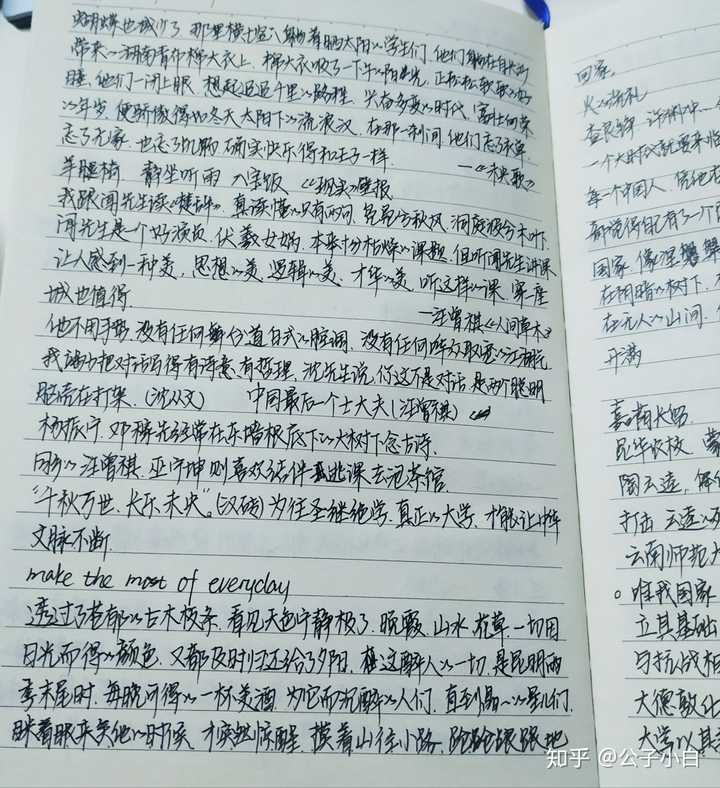 蝴蝶也飞了 那里横七竖八躺着晒太阳的学生们 他们躺在自己的
带来的湖南青布棉大衣上 棉大衣吸了一下午的阳光 正松松软软的好
睡 他们一闭上眼 想起迢迢千里的路程 兴奋多变的时代 富壮向荣
的年岁 便骄傲得如冬天太阳下的流浪汉 在那一刹间 他们忘了衣单
忘了无家 也忘了饥肠 确实快乐得和王子一样 —《未央歌》
羊腿椅 静坐听雨 八宝饭 《现实》壁报
我跟闻先生读《楚辞》 真读懂的只有两句 袅袅兮秋风 洞庭波兮木叶下
闻先生是个好演员 伏羲女娲 本来十分枯燥的课题 但听闻先生讲课
让人感到一种美 思想的美 逻辑的美 才华的美 听这样的课 穿一座
城也值得 —汪曾祺《人间草木》
他不用手势 没有任何舞台道白式的腔调 没有任何哗众取宠的江湖气
我竭力把对话写得有诗意 有哲理 沈先生说 你这不是对话 是两个聪明
脑壳在打架 (沈从文) 中国最后一个士大夫(汪曾祺)
杨振宁 邓稼先经常在东墙根底下的大树下念古诗
同乡的汪曾祺 巫宁坤则喜欢结伴逃课去泡茶馆
"千秋万世 长乐未央"(汉砖) 为往圣继绝学 真正的大学 才能让中华
文脉不断
make the most of everyday
透过了苍郁的古木枝条 看见天色宁静极了 晚霞 山水 花草 一切因
日光而得的颜色 又都及时归还给了夕阳 这醉人的一切 是昆明雨
季末尾时 每晚可得的一杯美酒 为它而沉醉的人们 直到晶的星儿们
眯着眼来笑他的时候 才突然惊醒 摸着山径小路 跄跄踉踉地
回家
火的洗礼
一个大时代就要来临
每一个中国人
都觉得自己有了一个
国家 像涅槃
在阴暗的树下
在无人的山间
开满
喜
昆华农校 蒙
陶云逵
打击 云逵的
云南师范大
唯我国家
立其基础
与抗战相
大德敦化
大学以其
知乎 @公子小白